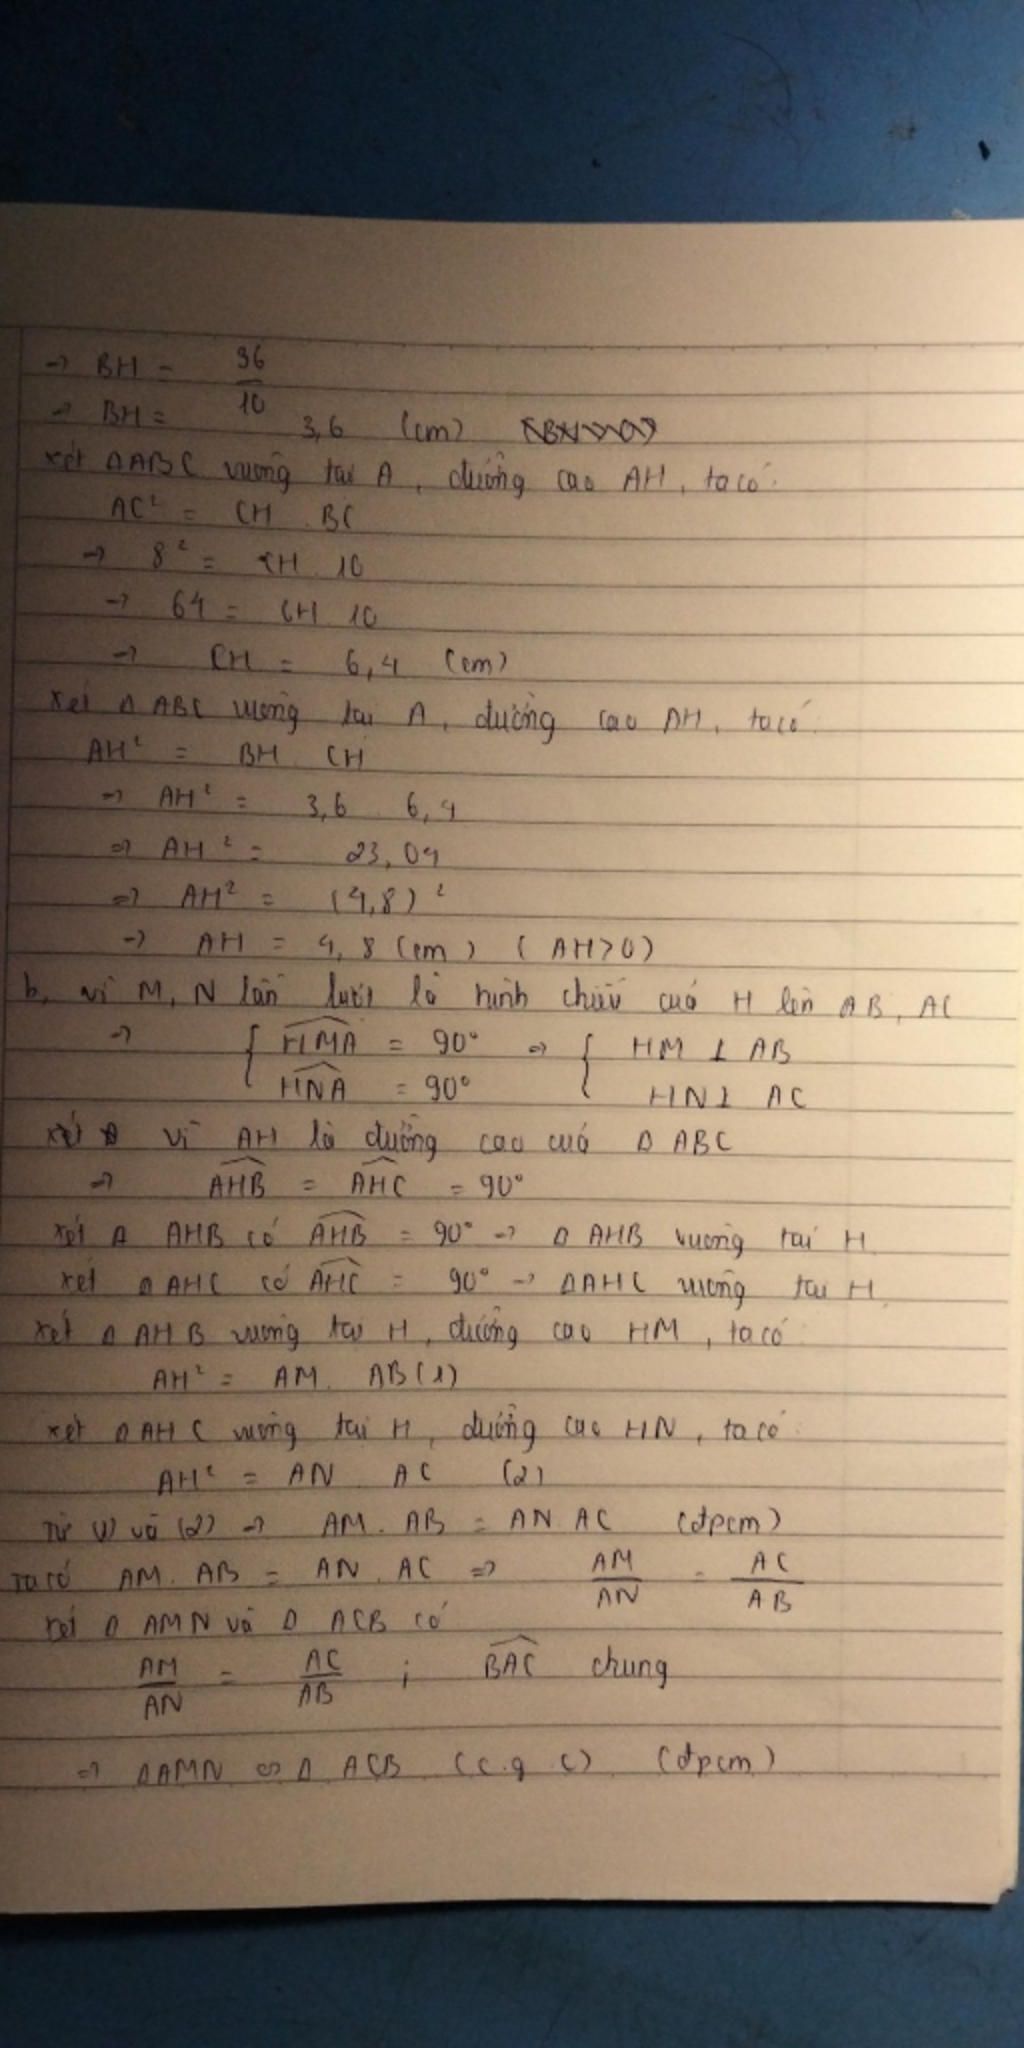 → BH = 36/10
→ BH = 3,6 (cm)
xét ΔABC vuông tại A, đường cao AH, ta có:
AC² = CH . BC
→ 8² = CH . 10
→ 64 = CH . 10
→ CH = 6,4 (cm)
xét Δ ABC vuông tại A, đường cao AH, ta có:
AH² = BH . CH
→ AH² = 3,6 . 6,4
⇒ AH² = 23,04
⇒ AH² = (4,8)²
→ AH = 4,8 (cm) (AH>0)
b, vì M, N lần lượt là hình chiếu của H lên AB, AC
→ { HMA = 90° ⇒ { HM ⊥ AB
HNA = 90° HN ⊥ AC
vì AH là đường cao của Δ ABC
⇒ AHB = AHC = 90°
xét Δ AHB có AHB = 90° → Δ AHB vuông tại H
xét Δ AHC có AHC = 90° → ΔAHC vuông tại H
xét Δ AHB vuông tại H, đường cao HM, ta có:
AH² = AM . AB (1)
xét Δ AHC vuông tại H, đường cao HN, ta có:
AH² = AN . AC (2)
Từ (1) và (2) ⇒ AM . AB = AN . AC (đpcm)
Ta có AM . AB = AN . AC ⇒ AM/AN = AC/AB
xét Δ AMN và Δ ACB có
AM/AN = AC/AB ; BAC chung
⇒ ΔAMN ∽ Δ ACB (c.g.c) (đpcm)